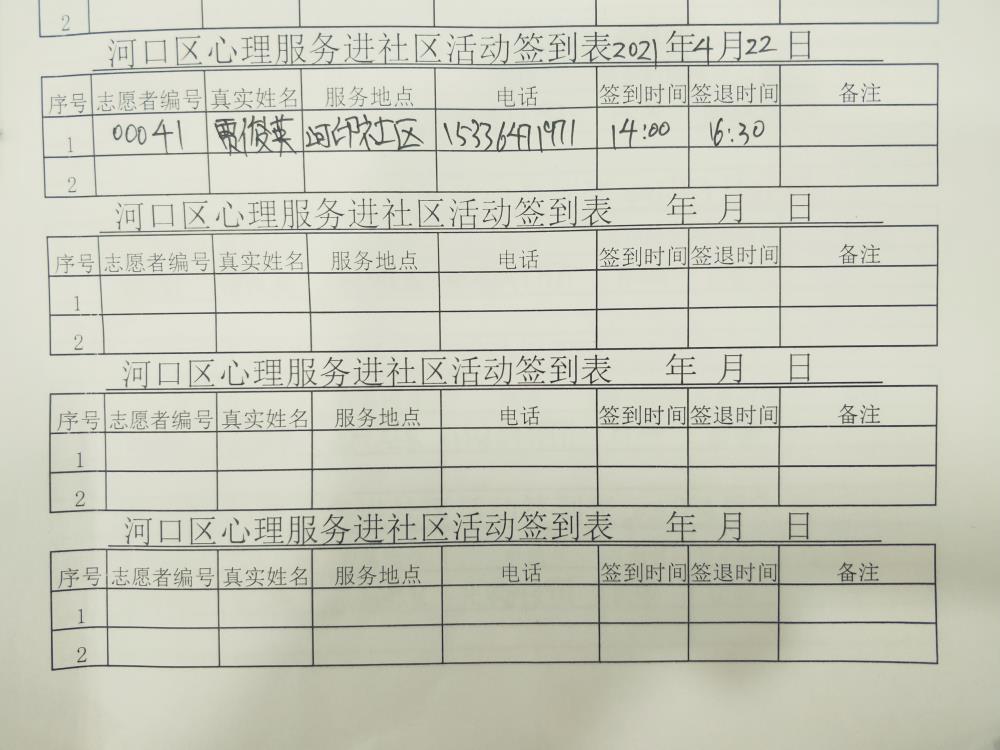 2
河口区心理服务进社区活动签到表2021年4月22日
序号 志愿者编号 真实姓名 服务地点 电话 签到时间 签退时间 备注
1 00041 贾俊英 河印社区 15336471971 14:00 16:30
2
河口区心理服务进社区活动签到表 年 月 日
序号 志愿者编号 真实姓名 服务地点 电话 签到时间 签退时间 备注
1
2
河口区心理服务进社区活动签到表 年 月 日
序号 志愿者编号 真实姓名 服务地点 电话 签到时间 签退时间 备注
1
2
河口区心理服务进社区活动签到表 年 月 日
序号 志愿者编号 真实姓名 服务地点 电话 签到时间 签退时间 备注
1
2